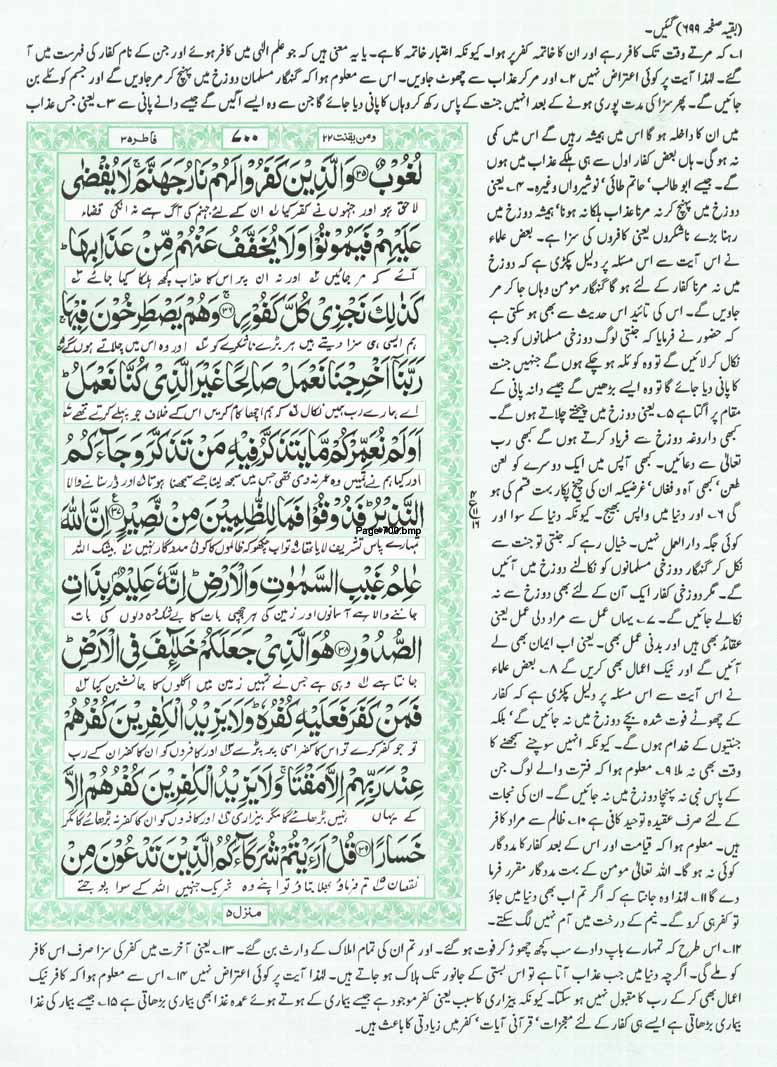 (بقیہ صفحہ ۶۹۹) گئیں۔
۱؎ کہ مرتے وقت تک کافر رہے اور ان کا خاتمہ کفر پر ہوا۔ کیونکہ اعتبار خاتمہ کا ہے۔ یا یہ معنی ہیں کہ جو علم الٰہی میں کافر ہوئے اور جن کے نام کفار کی فہرست میں آ
گئے۔ لہٰذا آیت پر کوئی اعتراض نہیں ۲؎ اور مر کر عذاب سے چھوٹ جاویں۔ اس سے معلوم ہوا کہ گنہگار مسلمان دوزخ میں پہنچ کر مر جاویں گے اور جسم کوئلے بن
جائیں گے۔ پھر سزا کی مدت پوری ہونے کے بعد انہیں جنت کے پاس رکھ کر وہاں کا پانی دیا جائے گا جن سے وہ ایسے اگیں گے جیسے دانے پانی سے ۳؎ یعنی جس عذاب
میں ان کا داخلہ ہو گا اس میں ہمیشہ رہیں گے اس میں کمی
نہ ہو گی۔ ہاں بعض کفار اول سے ہی ہلکے عذاب میں ہوں
گے۔ جیسے ابو طالب' حاتم طائی' نوشیرواں وغیرہ۔ ۴؎ یعنی
دوزخ میں پہنچ کر نہ مرنا عذاب ہلکا نہ ہونا' ہمیشہ دوزخ میں
رہنا بڑے ناشکروں یعنی کافروں کی سزا ہے۔ بعض علماء
نے اس آیت سے اس مسئلہ پر دلیل پکڑی ہے کہ دوزخ
میں نہ مرنا کفار کے لئے ہو گا گنہگار مومن وہاں جا کر مر
جاویں گے۔ اس کی تائید اس حدیث سے بھی ہو سکتی ہے
کہ حضور نے فرمایا کہ جنتی لوگ دوزخی مسلمانوں کو جب
نکال کر لائیں گے تو وہ کوئلہ ہو چکے ہوں گے جنہیں جنت
کا پانی دیا جائے گا تو وہ ایسے بڑھیں گے جیسے دانہ پانی کے
مقام پر اگتا ہے ۵؎ یعنی دوزخ میں چیختے چلاتے ہوں گے۔
کبھی داروغہ دوزخ سے فریاد کرتے ہوں گے کبھی رب
تعالٰی سے دعائیں۔ کبھی آپس میں ایک دوسرے کو لعن
طعن' کبھی آہ و فغاں' غرضیکہ ان کی چیخ پکار بہت قسم کی ہو
گی ۶؎ اور دنیا میں واپس بھیج۔ کیونکہ دنیا کے سوا اور
کوئی جگہ دارالعمل نہیں۔ خیال رہے کہ جنتی تو جنت سے
نکل کر گنہگار دوزخی مسلمانوں کو نکالنے دوزخ میں آئیں
گے۔ مگر دوزخی کفار ایک آن کے لئے بھی دوزخ سے نہ
نکالے جائیں گے۔ ۷؎ یہاں عمل سے مراد دلی عمل یعنی
عقائد بھی ہیں اور بدنی عمل بھی۔ یعنی اب ایمان بھی لے
آئیں گے اور نیک اعمال بھی کریں گے ۸؎ بعض علماء
نے اس آیت سے اس مسئلہ پر دلیل پکڑی ہے کہ کفار
کے چھوٹے فوت شدہ بچے دوزخ میں نہ جائیں گے' بلکہ
جنتیوں کے خدام ہوں گے۔ کیونکہ انہیں سوچنے سمجھنے کا
وقت بھی نہ ملا ۹؎ معلوم ہوا کہ فترت والے لوگ جن
کے پاس نبی نہ پہنچا دوزخ میں نہ جائیں گے۔ ان کی نجات
کے لئے صرف عقیدہ توحید کافی ہے ۱۰؎ ظالم سے مراد کافر
ہیں۔ معلوم ہوا کہ قیامت اور اس کے بعد کفار کا مددگار
کوئی نہ ہو گا۔ اللہ تعالٰی مومن کے بہت مددگار مقرر فرما
دے گا ۱۱؎ لہٰذا وہ جانتا ہے کہ اگر تم اب بھی دنیا میں جاؤ
تو کفر ہی کرو گے۔ نیم کے درخت میں آم نہیں لگ سکتے۔
ومن یقنت ۲۲
۷۰۰
فاطر ۳۵
لُغُوْبٌ ﴿۳۵﴾ وَالَّذِیْنَ كَفَرُوْا لَهُمْ نَارُ جَهَنَّمَ ۚ لَا یُقْضٰى
لاحق ہو اور جنہوں نے کفر کیا ۱؎ ان کے لئے جہنم کی آگ ہے نہ انکی قضاء
عَلَیْهِمْ فَیَمُوْتُوْا وَلَا یُخَفَّفُ عَنْهُمْ مِّنْ عَذَابِهَا ؕ
آئے کہ مر جائیں ۲؎ اور نہ ان پر اس کا عذاب کچھ ہلکا کیا جائے ۳؎
كَذٰلِكَ نَجْزِیْ كُلَّ كَفُوْرٍ ﴿۳۶﴾ وَهُمْ یَصْطَرِخُوْنَ فِیْهَا ۚ
ہم ایسی ہی سزا دیتے ہیں ہر بڑے ناشکرے کو ۴؎ اور وہ اس میں چلاتے ہوں گے ۵؎
رَبَّنَاۤ اَخْرِجْنَا نَعْمَلْ صَالِحًا غَیْرَ الَّذِیْ كُنَّا نَعْمَلُ ؕ
اے ہمارے رب ہمیں نکال ۶؎ کہ ہم اچھا کام کریں اس کے خلاف جو پہلے کرتے تھے ۷؎
اَوَلَمْ نُعَمِّرْكُمْ مَّا یَتَذَكَّرُ فِیْهِ مَنْ تَذَكَّرَ وَجَآءَكُمُ
اور کیا ہم نے تمہیں وہ عمر نہ دی تھی جس میں سمجھ لیتا جسے سمجھنا ہوتا ۸؎ اور ڈر سنانے والا
النَّذِیْرُ ؕ فَذُوْقُوْا فَمَا لِلظّٰلِمِیْنَ مِنْ نَّصِیْرٍ ﴿۳۷﴾ اِنَّ اللّٰهَ
Page-700.bmp
تمہارے پاس تشریف لایا تھا ۹؎ تو اب چکھو کہ ظالموں کا کوئی مددگار نہیں ۱۰؎ بیشک اللہ
عٰلِمُ غَیْبِ السَّمٰوٰتِ وَالْاَرْضِ ؕ اِنَّهٗ عَلِیْمٌۢ بِذَاتِ
جاننے والا ہے آسمانوں اور زمین کی ہر چھپی بات کا بے شک وہ دلوں کی بات
الصُّدُوْرِ ﴿۳۸﴾ هُوَ الَّذِیْ جَعَلَكُمْ خَلٰٓئِفَ فِی الْاَرْضِ ؕ
جانتا ہے ۱۱؎ وہی ہے جس نے تمہیں زمین میں اگلوں کا جانشین کیا ۱۲؎
فَمَنْ كَفَرَ فَعَلَیْهِ كُفْرُهٗ ؕ وَلَا یَزِیْدُ الْكٰفِرِیْنَ كُفْرُهُمْ
تو جو کفر کرے تو اس کا کفر اسی پر پڑے ۱۳؎ اور کافروں کو ان کا کفر ان کے رب
عِنْدَ رَبِّهِمْ اِلَّا مَقْتًا ۚ وَلَا یَزِیْدُ الْكٰفِرِیْنَ كُفْرُهُمْ اِلَّا
کے یہاں نہیں بڑھائے گا مگر بیزاری ۱۴؎ اور کافروں کو ان کا کفر نہ بڑھائے گا مگر
خَسَارًا ﴿۳۹﴾ قُلْ اَرَءَیْتُمْ شُرَكَآءَكُمُ الَّذِیْنَ تَدْعُوْنَ مِنْ
نقصان ۱۵؎ تم فرماؤ بھلا بتاؤ تو اپنے وہ شریک جنہیں اللہ کے سوا پوجتے
منزل ۵
۱۲؎ اس طرح کہ تمہارے باپ دادے سب کچھ چھوڑ کر فوت ہو گئے۔ اور تم ان کی تمام املاک کے وارث بن گئے۔ ۱۳؎ یعنی آخرت میں کفر کی سزا صرف اس کافر
کو ملے گی۔ اگرچہ دنیا میں جب عذاب آتا ہے تو اس بستی کے جانور تک ہلاک ہو جاتے ہیں۔ لہٰذا آیت پر کوئی اعتراض نہیں ۱۴؎ اس سے معلوم ہوا کہ کافر نیک
اعمال بھی کر کے رب کا مقبول نہیں ہو سکتا۔ کیونکہ بیزاری کا سبب یعنی کفر موجود ہے جیسے بیماری کے ہوتے ہوئے عمدہ غذا بھی بیماری بڑھاتی ہے ۱۵؎ جیسے بیمار کی غذا
بیماری بڑھاتی ہے ایسے ہی کفار کے لئے معجزات' قرآنی آیات' کفر میں زیادتی کا باعث ہیں۔